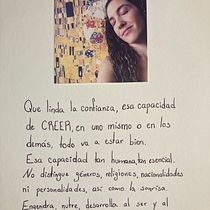 Que linda la confianza, esa capacidad
de CREER, en uno mismo o en los
demás, todo va a estar bien.
Esa capacidad tan humana, tan esencial.
No distingue géneros, religiones, nacionalidades
ni personalidades, así como la sonrisa.
Engendra, nutre, desarrolla al ser y al